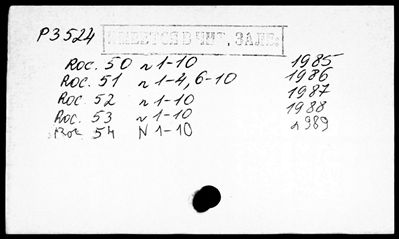 P3524 ИМЕЕТСЯ В ЧИТ. ЗАЛЕ.
Roc. 50 n 1-10 1985
Roc. 51 n 1-4, 6-10 1986
Roc. 52 n 1-10 1987
Roc. 53 n 1-10 1988
Roc 54 N 1-10 1989